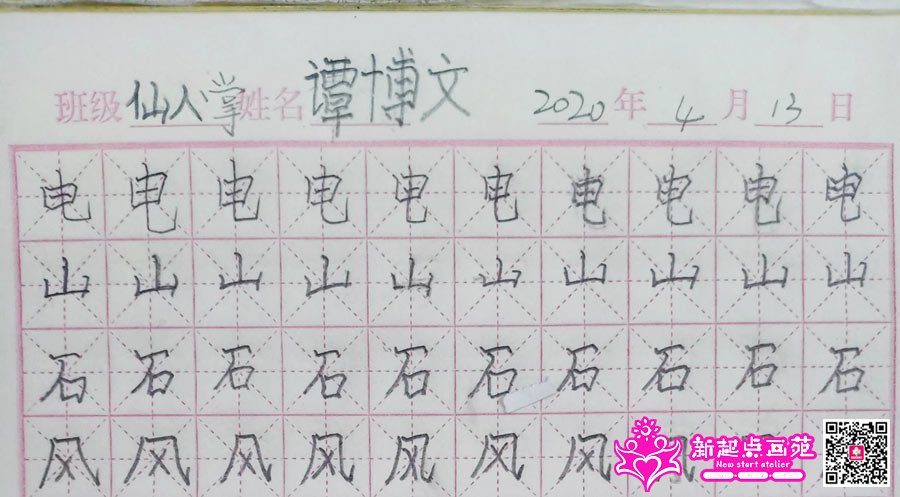 班级 仙人掌 姓名 谭博文 2020 年 4 月 13 日
电 电 电 电 电 电 电 电 电 电
山 山 山 山 山 山 山 山 山 山
石 石 石 石 石 石 石 石 石 石
风 风 风 风 风 风 风
新起点画苑
New start atelier